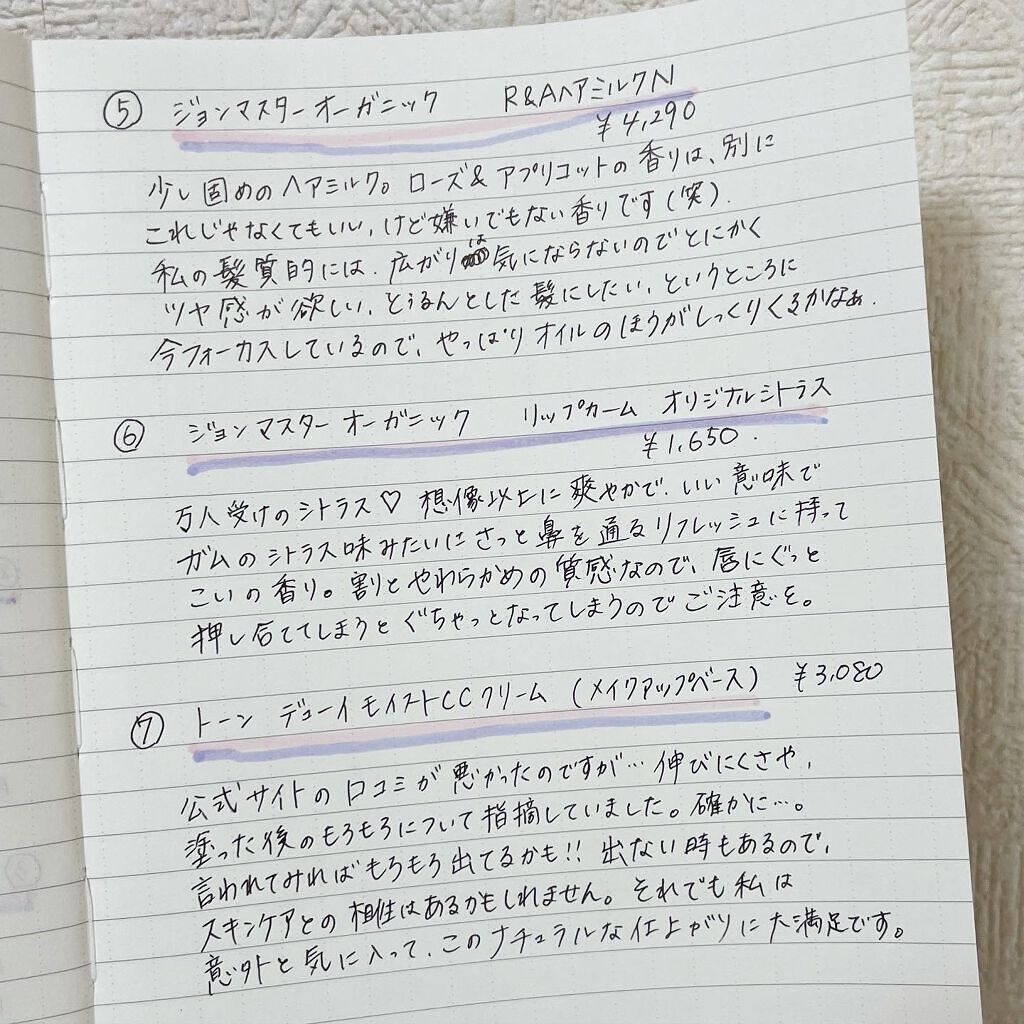 ⑤ ジョンマスターオーガニック R&Aヘアミルク N
¥4,290
少し固めのヘアミルク。ローズ&アプリコットの香りは、別に
これじゃなくてもいい、けど嫌いでもない香りです(笑).
私の髪質的には、広がりは気にならないのでとにかく
ツヤ感が欲しい、とぅるんとした髪にしたい、というところに
今フォーカスしているので、やっぱりオイルのほうがしっくりくるかなぁ.
⑥ ジョンマスターオーガニック リップカーム オリジナルシトラス
¥1,650.
万人受けのシトラス♡ 想像以上に爽やかで、いい意味で
ガムのシトラス味みたいにさっと鼻を通るリフレッシュに持って
こいの香り。割とやわらかめの質感なので、唇にぐっと
押し当ててしまうとぐちゃっとなってしまうのでご注意を。
⑦ トーン デューイモイストCCクリーム(メイクアップベース) ¥3,080
公式サイトの口コミが悪かったのですが…伸びにくさや、
塗った後のもろもろについて指摘していました。確かに…。
言われてみればもろもろ出てるかも!! 出ない時もあるので、
スキンケアとの相性はあるかもしれません。それでも私は
意外と気に入って、このナチュラルな仕上がりに大満足です。